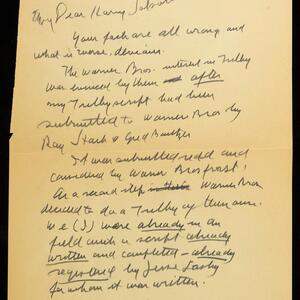 My Dear Harry
Your facts are all wrong and
what is worse,
The Warner Bros. interest in Trilby
was evinced by them after
my Trilby script had been
submitted to Warner Bros by
Ray Stark &
It was submitted read and
considered by Warner Bros first!
As a second step Warner Bros
decided to do a Trilby of their own.
We (I) were already in an
field with a script already
written and completed - already
registered by Jesse Lasky
for whom it was written.